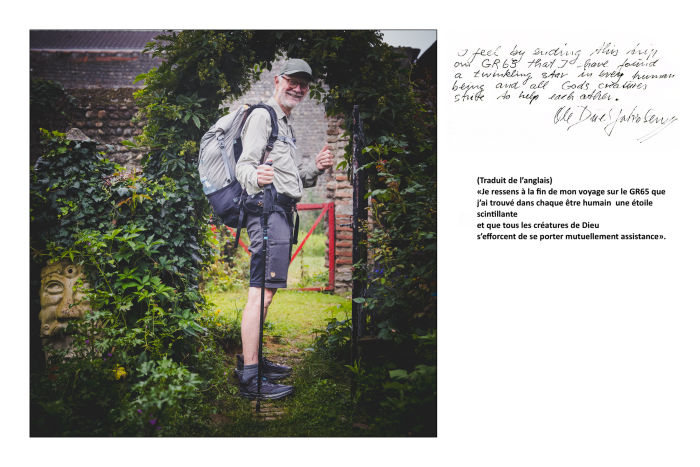 I feel by ending this trip
on GR65 that I have found
a twinkling star in every human
being and all Gods creatures
strive to help each other.
(Traduit de l’anglais)
«Je ressens à la fin de mon voyage sur le GR65 que
j’ai trouvé dans chaque être humain une étoile
scintillante
et que tous les créatures de Dieu
s’efforcent de se porter mutuellement assistance».